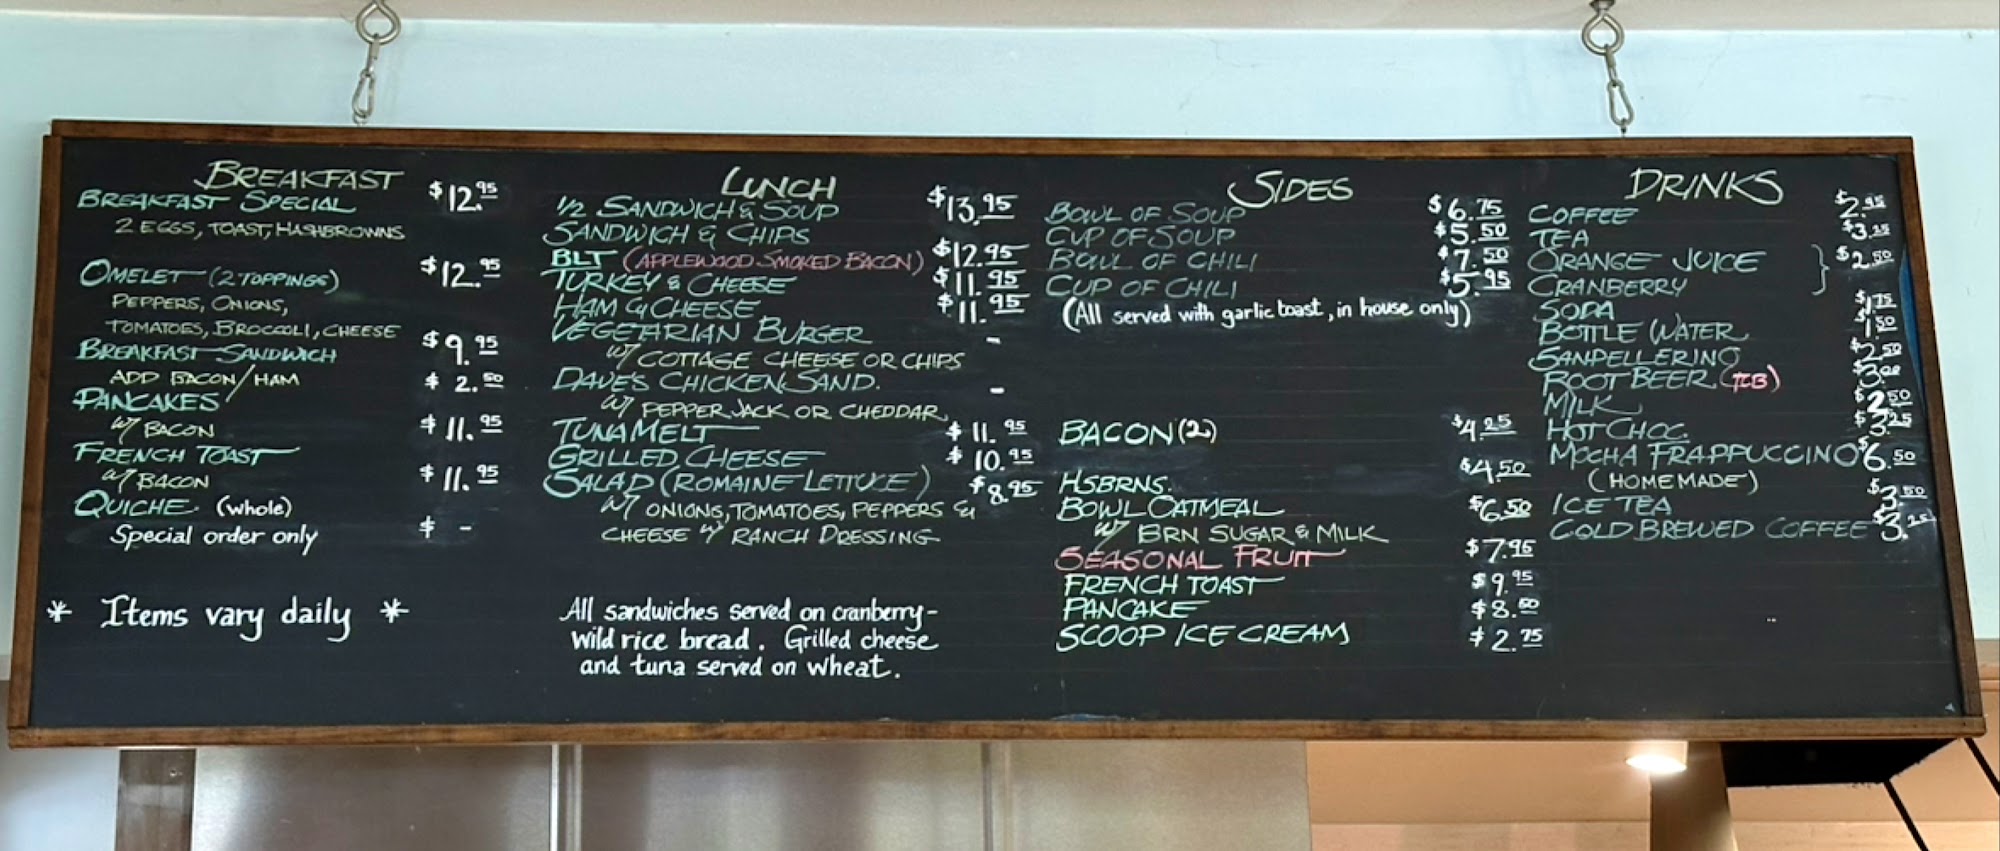 BREAKFAST
BREAKFAST SPECIAL $12.95
2 EGGS, TOAST, HASHBROWNS
OMELET (2 TOPPINGS) $12.95
PEPPERS, ONIONS,
TOMATOES, BROCCOLI, CHEESE
BREAKFAST SANDWICH $9.95
ADD BACON/HAM $2.50
PANCAKES
W/ BACON $11.95
FRENCH TOAST
W/ BACON $11.95
QUICHE (whole)
Special order only $ -
* Items vary daily *
LUNCH
1/2 SANDWICH & SOUP $13.95
SANDWICH & CHIPS
BLT (APPLEWOOD SMOKED BACON) $12.95
TURKEY & CHEESE $11.95
HAM & CHEESE $11.95
VEGETARIAN BURGER -
W/ COTTAGE CHEESE OR CHIPS
DAVE'S CHICKEN SAND. -
W/ PEPPER JACK OR CHEDDAR
TUNA MELT $11.95
GRILLED CHEESE $10.95
SALAD (ROMAINE LETTUCE) $8.95
W/ ONIONS, TOMATOES, PEPPERS &
CHEESE W/ RANCH DRESSING
All sandwiches served on cranberry-
wild rice bread. Grilled cheese
and tuna served on wheat.
SIDES
BOWL OF SOUP $6.75
CUP OF SOUP $5.50
BOWL OF CHILI $7.50
CUP OF CHILI $5.95
(All served with garlic toast, in house only)
BACON (2) $4.25
HSBRNS. $4.50
BOWL OATMEAL $6.50
W/ BRN SUGAR & MILK
SEASONAL FRUIT $7.95
FRENCH TOAST $9.95
PANCAKE $8.50
SCOOP ICE CREAM $2.75
DRINKS
COFFEE $2.95
TEA $3.25
ORANGE JUICE } $2.50
CRANBERRY
SODA $1.75
BOTTLE WATER $1.50
SANPELLERINO $2.50
ROOT BEER (TCB) $3.00
MILK $2.50
HOT CHOC. $3.25
MOCHA FRAPPUCCINO $6.50
(HOMEMADE)
ICE TEA $3.50
COLD BREWED COFFEE $3.25